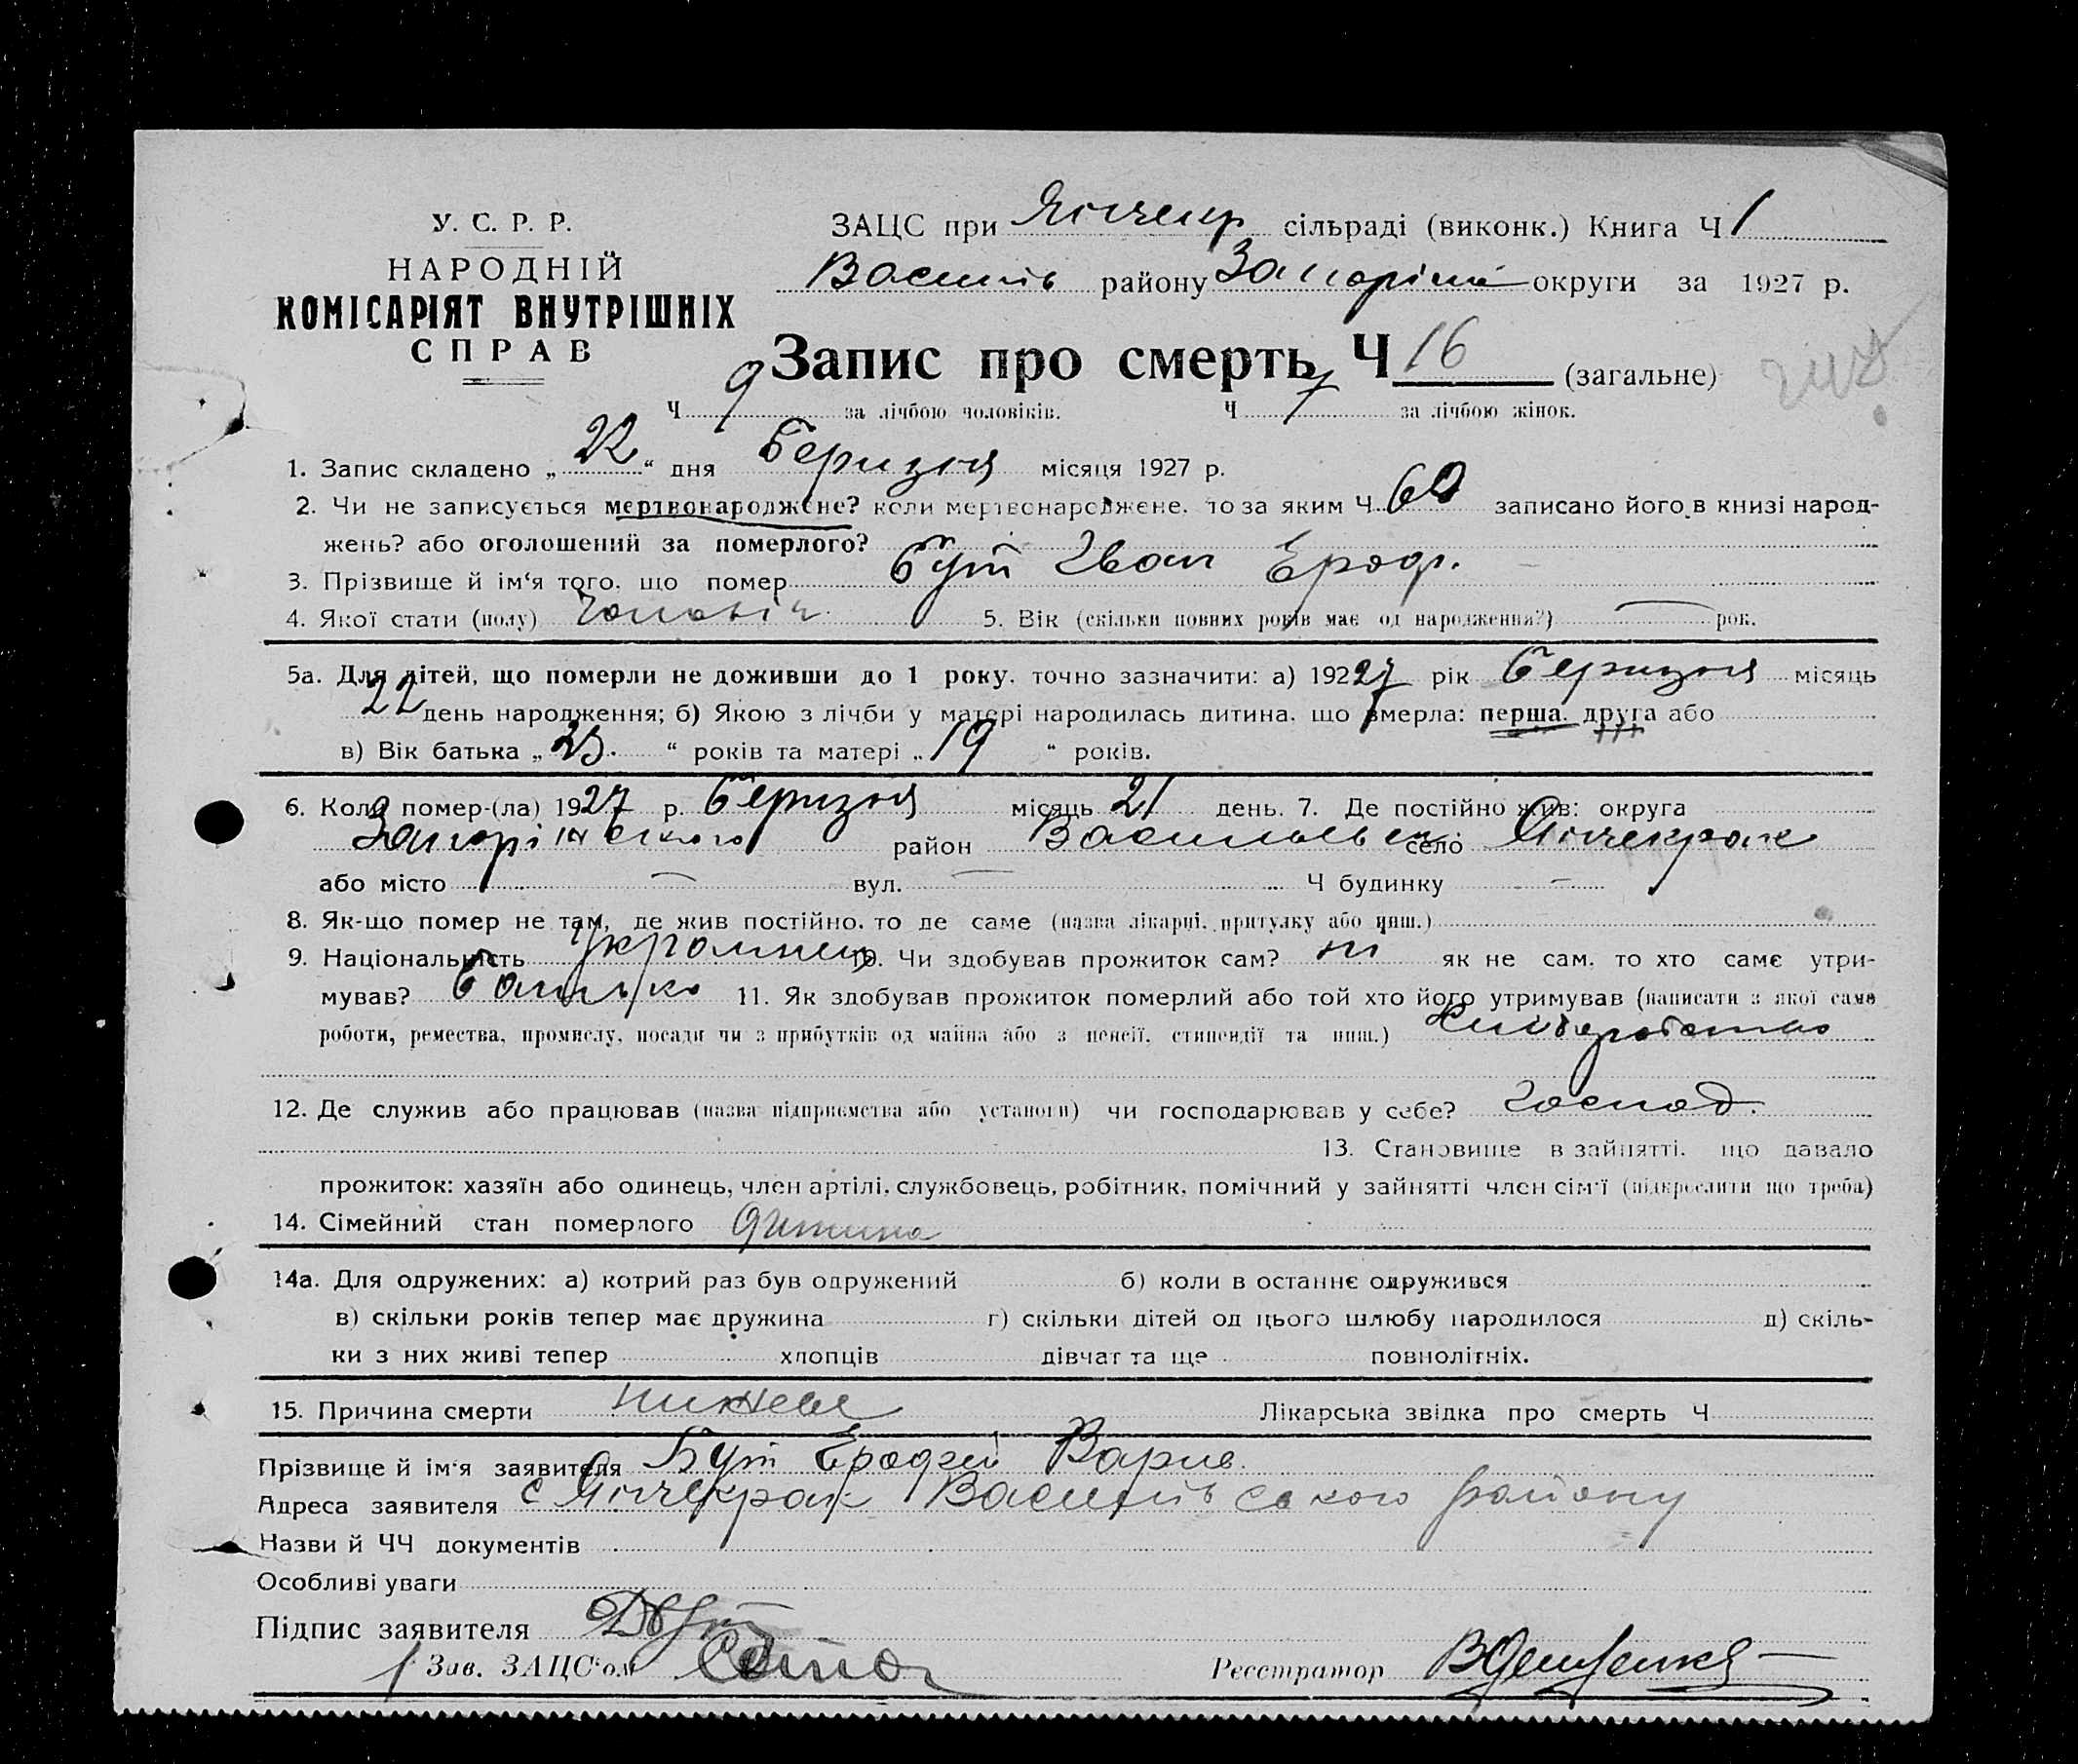 У. С. Р. Р.
НАРОДНІЙ
КОМІСАРІЯТ ВНУТРІШНІХ
СПРАВ
ЗАЦС при Янчекр сільраді (виконк.) Книга Ч 1
Василів району Запоріжж округи за 1927 р.
Запис про смерть Ч 16 (загальне)
Ч 9 за лічбою чоловіків. Ч 7 за лічбою жінок.
1. Запис складено „ 22 “ дня Беризня місяця 1927 р.
2. Чи не записується мертвонароджене? коли мертвонароджене, то за яким Ч 60 записано його в книзі народ-
жень? або оголошений за померлого?
3. Прізвище й ім‘я того, що помер Бут Іван Ероф.
4. Якої стати (полу) Чоловіч 5. Вік (скільки повних років має од народження?) — рок.
5а. Для дітей, що померли не доживши до 1 року, точно зазначити: а) 19227 рік Беризня місяць
22 день народження; б) Якою з лічби у матері народилась дитина, що вмерла: перша, друга або
в) Вік батька „ 23 “ років та матері „ 19 “ років.
6. Коли помер-(ла) 1927 р. Беризня місяць 21 день. 7. Де постійно жив: округа
Запоріжського район Васильвск село Янчекрак
або місто — вул. — Ч будинку —
8. Як-що помер не там, де жив постійно, то де саме (назва лікарні, притулку або инш.)
9. Національність Украінец 10. Чи здобував прожиток сам? ні як не сам, то хто саме утри-
мував? батько 11. Як здобував прожиток померлий або той хто його утримував (написати з якої саме
роботи, ремества, промислу, посади чи з прибутків од майна або з пенсії, стипендії та инш.)
12. Де служив або працював (назва підприємства або установи) чи господарював у себе? Господ.
13. Становище в зайнятті, що давало
прожиток: хазяїн або одинець, член артілі, службовець, робітник, помічний у зайнятті член сім‘ї (підкреслити що треба)
14. Сімейний стан померлого дитина
14а. Для одружених: а) котрий раз був одружений б) коли в останнє одружився
в) скільки років тепер має дружина г) скільки дітей од цього шлюбу народилося д) скіль-
ки з них живі тепер хлопців дівчат та ще повнолітніх.
15. Причина смерти Лікарська звідка про смерть Ч
Прізвище й ім‘я заявителя Бут Ерофей
Адреса заявителя с Янчекрак Василівського району
Назви й ЧЧ документів
Особливі уваги
Підпис заявителя
Зав. ЗАЦС‘ом
Реєстратор